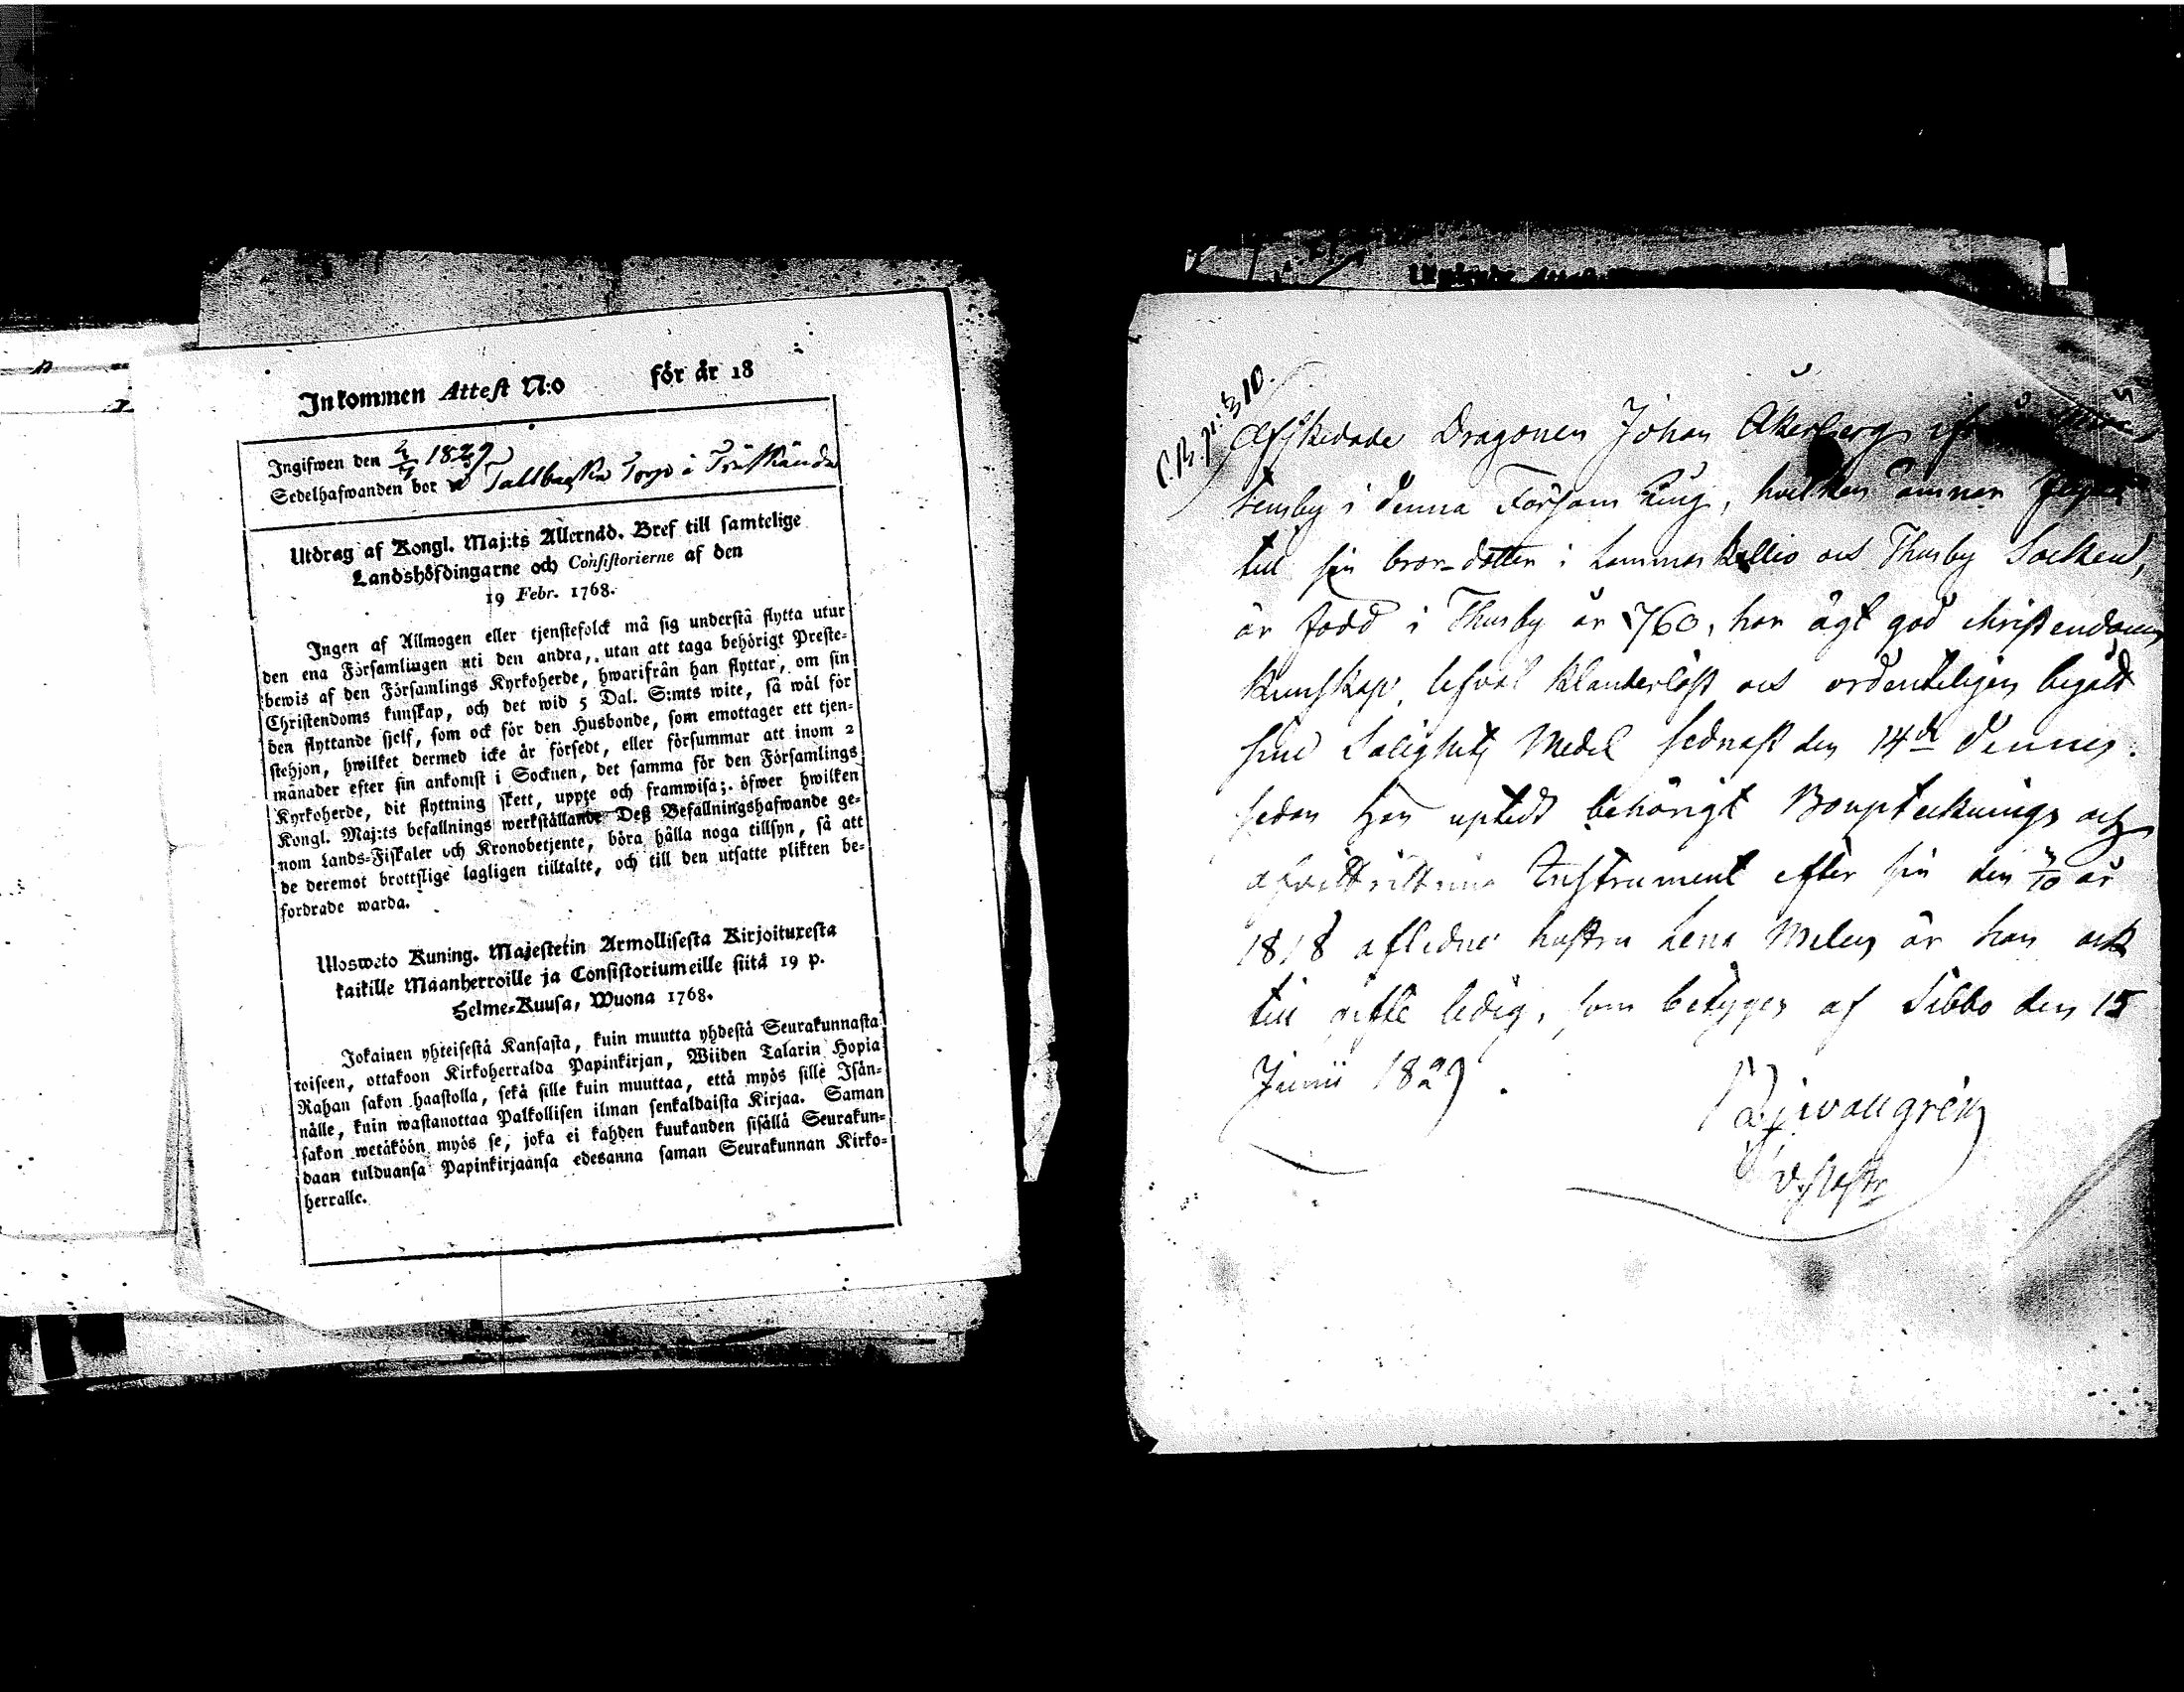 Inkommen Attest N:o för år 18
Ingifwen den 2/9 1829
Sedelhafwanden bor Tallbacka Torp i Träskända
Utdrag af Kongl. Maj:ts Allernåd. Bref till samtelige
Landshöfdingarne och Consistorierne af den
19 Febr. 1768.
Ingen af Allmogen eller tjenstefolck må sig understå flytta utur
den ena Församlingen uti den andra, utan att taga behörigt Preste-
bewis af den Församlings Kyrkoherde, hwarifrån han flyttar, om sin
Christendoms kunskap, och det wid 5 Dal. S:mts wite, så wäl för
den flyttande sjelf, som ock för den Husbonde, som emottager ett tjen-
stehjon, hwilket dermed icke är försedt, eller försummar att inom 2
månader efter sin ankomst i Socknen, det samma för den Församlings
Kyrkoherde, dit flyttning skett, uppte och framwisa; öfwer hwilken
Kongl. Maj:ts befallnings werkställande Deß Befallningshafwande ge-
nom Lands-Fiskaler och Kronobetjente, böra hålla noga tillsyn, så att
de deremot brottslige lagligen tilltalte, och till den utsatte plikten be-
fordrade warda.
Ulosweto Kuning. Majestetin Armollisesta Kirjoituxesta
kaikille Maanherroille ja Consistoriumeille siitä 19 p.
Helme-Kuusa, Wuona 1768.
Jokainen yhteisestä Kansasta, kuin muutta yhdestä Seurakunnasta
toiseen, ottakoon Kirkoherralda Papinkirjan, Wiiden Talarin Hopia
Rahan sakon haastolla, sekä sille kuin muuttaa, että myös sille Isän-
nälle, kuin wastanottaa Palkollisen ilman senkaldaista Kirjaa. Saman
sakon wetäköön myös se, joka ei kahden kuukauden sisällä Seurakun-
daan tulduansa Papinkirjaansa edesanna saman Seurakunnan Kirko-
herralle.
Afskedade Dragonen Johan Åkerberg
i denna Församling, hvilken ämnar
till sin bror-dotter i Lammaskallio och Thusby Socken,
är född i Thusby år 1760, har ägt god christendoms
kunskap, lefvat klanderlöst och ordenteligen begått
sine Salighets Medel sednast den 14de dennes.
sedan han uptedt behörigt Boupteknings och
afvittrings Instrument efter sin den /10 år
1818 aflidne hustru Lena Melen är han ock
till gifte ledig, som betygas af Sibbo den 15
Junii 1829.